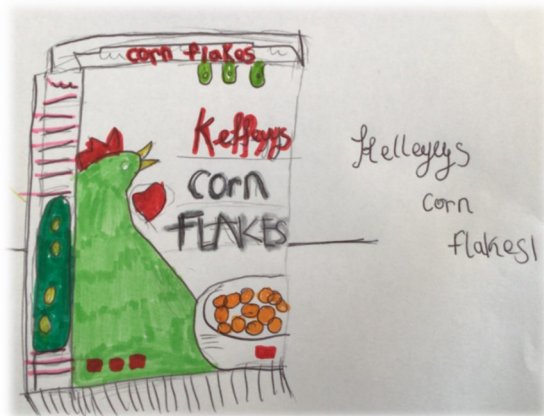 corn flakes
Keffeyys
corn
FLAKES
Helleyys
corn
flakes